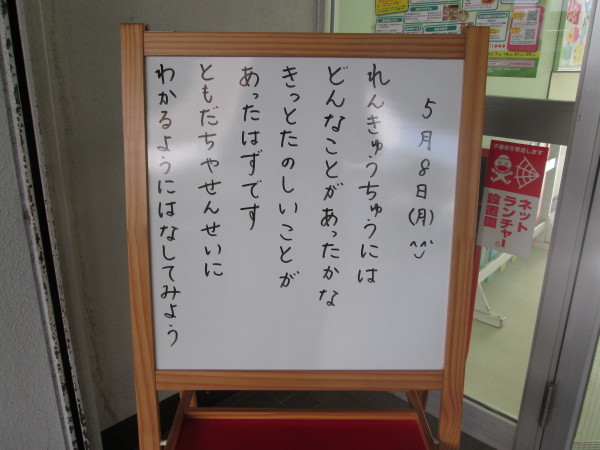 5月8日(月)^^
れんきゅうちゅうには
どんなことがあったかな
きっとたのしいことが
あったはずです
ともだちやせんせいに
わかるようにはなしてみよう
不審者を撃退します
ネット
ランチャー
設置園